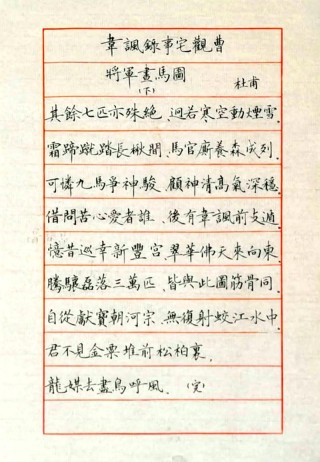 韋諷錄事宅觀曹
將軍畫馬圖
(下)
杜甫
其餘七匹亦殊絕、迥若寒空動煙雪、
霜蹄蹴踏長楸間、馬官廝養森成列、
可憐九馬爭神駿、顧神清高氣深穩、
借問苦心愛者誰、後有韋諷前支遁、
憶昔巡幸新豐宮、翠華佛天來向東、
騰驤磊落三萬匹、皆與此圖筋骨同、
自從獻寶朝河宗、無復射蛟江水中、
君不見金粟堆前松柏裏、
龍媒去盡鳥呼風、(完)